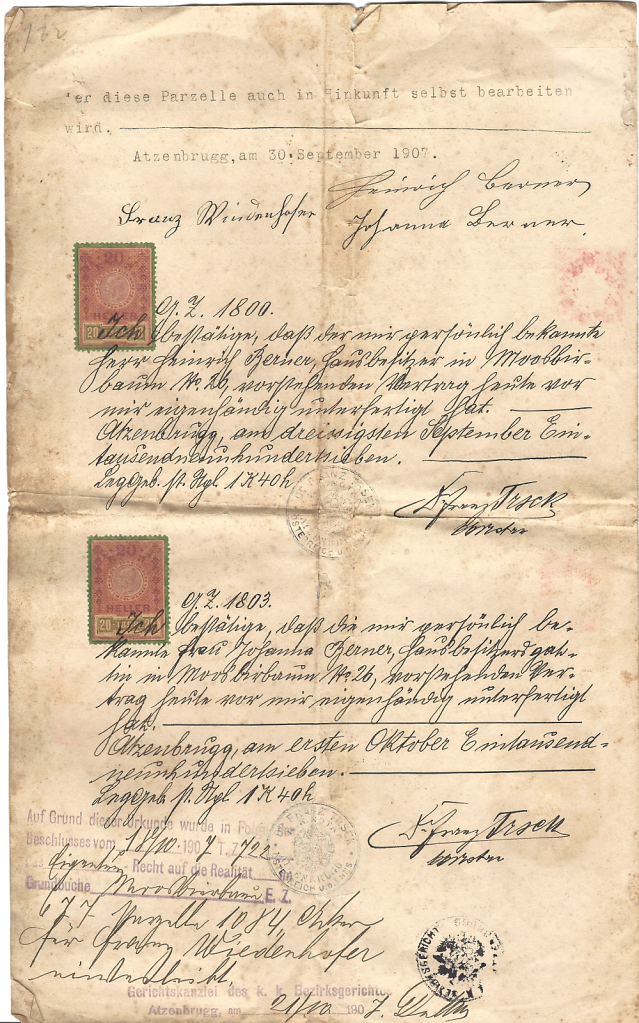 er diese Parzelle auch in Hinkunft selbst bearbeiten
wird.
Atzenbrugg, am 30. September 1907.
Heinrich Berner
Franz Windenhofer
Johanna Berner.
20
HELLER
G. Z. 1800.
Ich bestätige, daß der mir persönlich bekannte
Herr Heinrich Berner, Hausbesitzer in Moosbir-
baum No 26, vorstehenden Vertrag heute vor
mir eigenhändig unterfertigt hat.
Atzenbrugg, am dreissigsten September Ein-
tausendneunhundertsieben.
Leg. Geb. st. Ngl. 1 K 40 h
Dr. Franz
20
HELLER
G. Z. 1803.
Ich bestätige, daß die mir persönlich be-
kannte Frau Johanna Berner, Hausbesitzersgat-
tin in Moosbirbaum No 26, vorstehenden Ver-
trag heute vor mir eigenhändig unterfertigt
hat.
Atzenbrugg, am ersten Oktober Eintausend-
neunhundertsieben.
Leg. Geb. st. Ngl. 1 K 40 h
Dr. Franz
Auf Grund dieser Urkunde wurde in Folge
Beschlusses vom 18/10 1907 T.Z. 722
Eigentum Recht auf die Realität
Grundbuche Moosbierbaum E. Z.
677 Parzelle 1084 Acker
für Franz Wiedenhofer
einverleibt.
Gerichtskanzlei des k. k. Bezirksgerichtes
Atzenbrugg, am 21/10 1907
BEZIRKSGERICHT